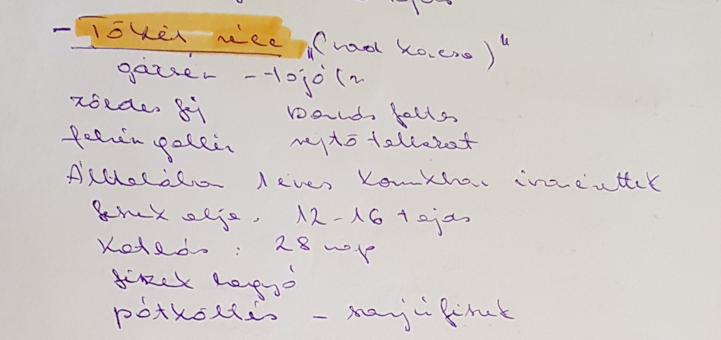 tojás
- Tőkés réce „(vad kacsa)"
gácsér - tojó (n
zöldes fej barnás foltos
fehér gallér rejtő tollazat
Általában 1 éves korukban ivarérettek
fészek alja. 12-16 tojás
Kotlás: 28 nap
fészek hagyó
pótköltés - sarjúfészek